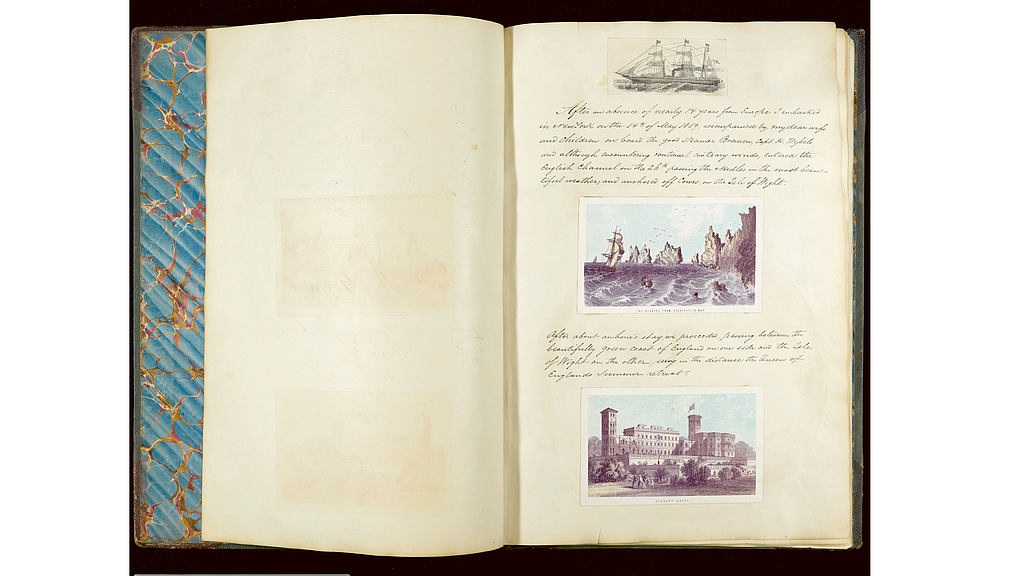 After an absence of nearly 14 years from Europe I embarked
in New York on the 14th of May 1859, accompanied by my dear wife
and children on board the good Steamer Bremen, Capt. H. Wessels
and although encountering continual contrary winds, entered the
English Channel on the 26th passing the Needles in the most beau-
tiful weather, and anchored off Cowes, on the Isle of Wight.
THE NEEDLES FROM SCRATCHELL'S BAY.
After about an hour's stay we proceeded, passing between the
beautifully green coast of England on one side and the Isle
of Wight on the other, seeing in the distance the Queen of
Englands Summer retreat.
OSBORNE HOUSE.